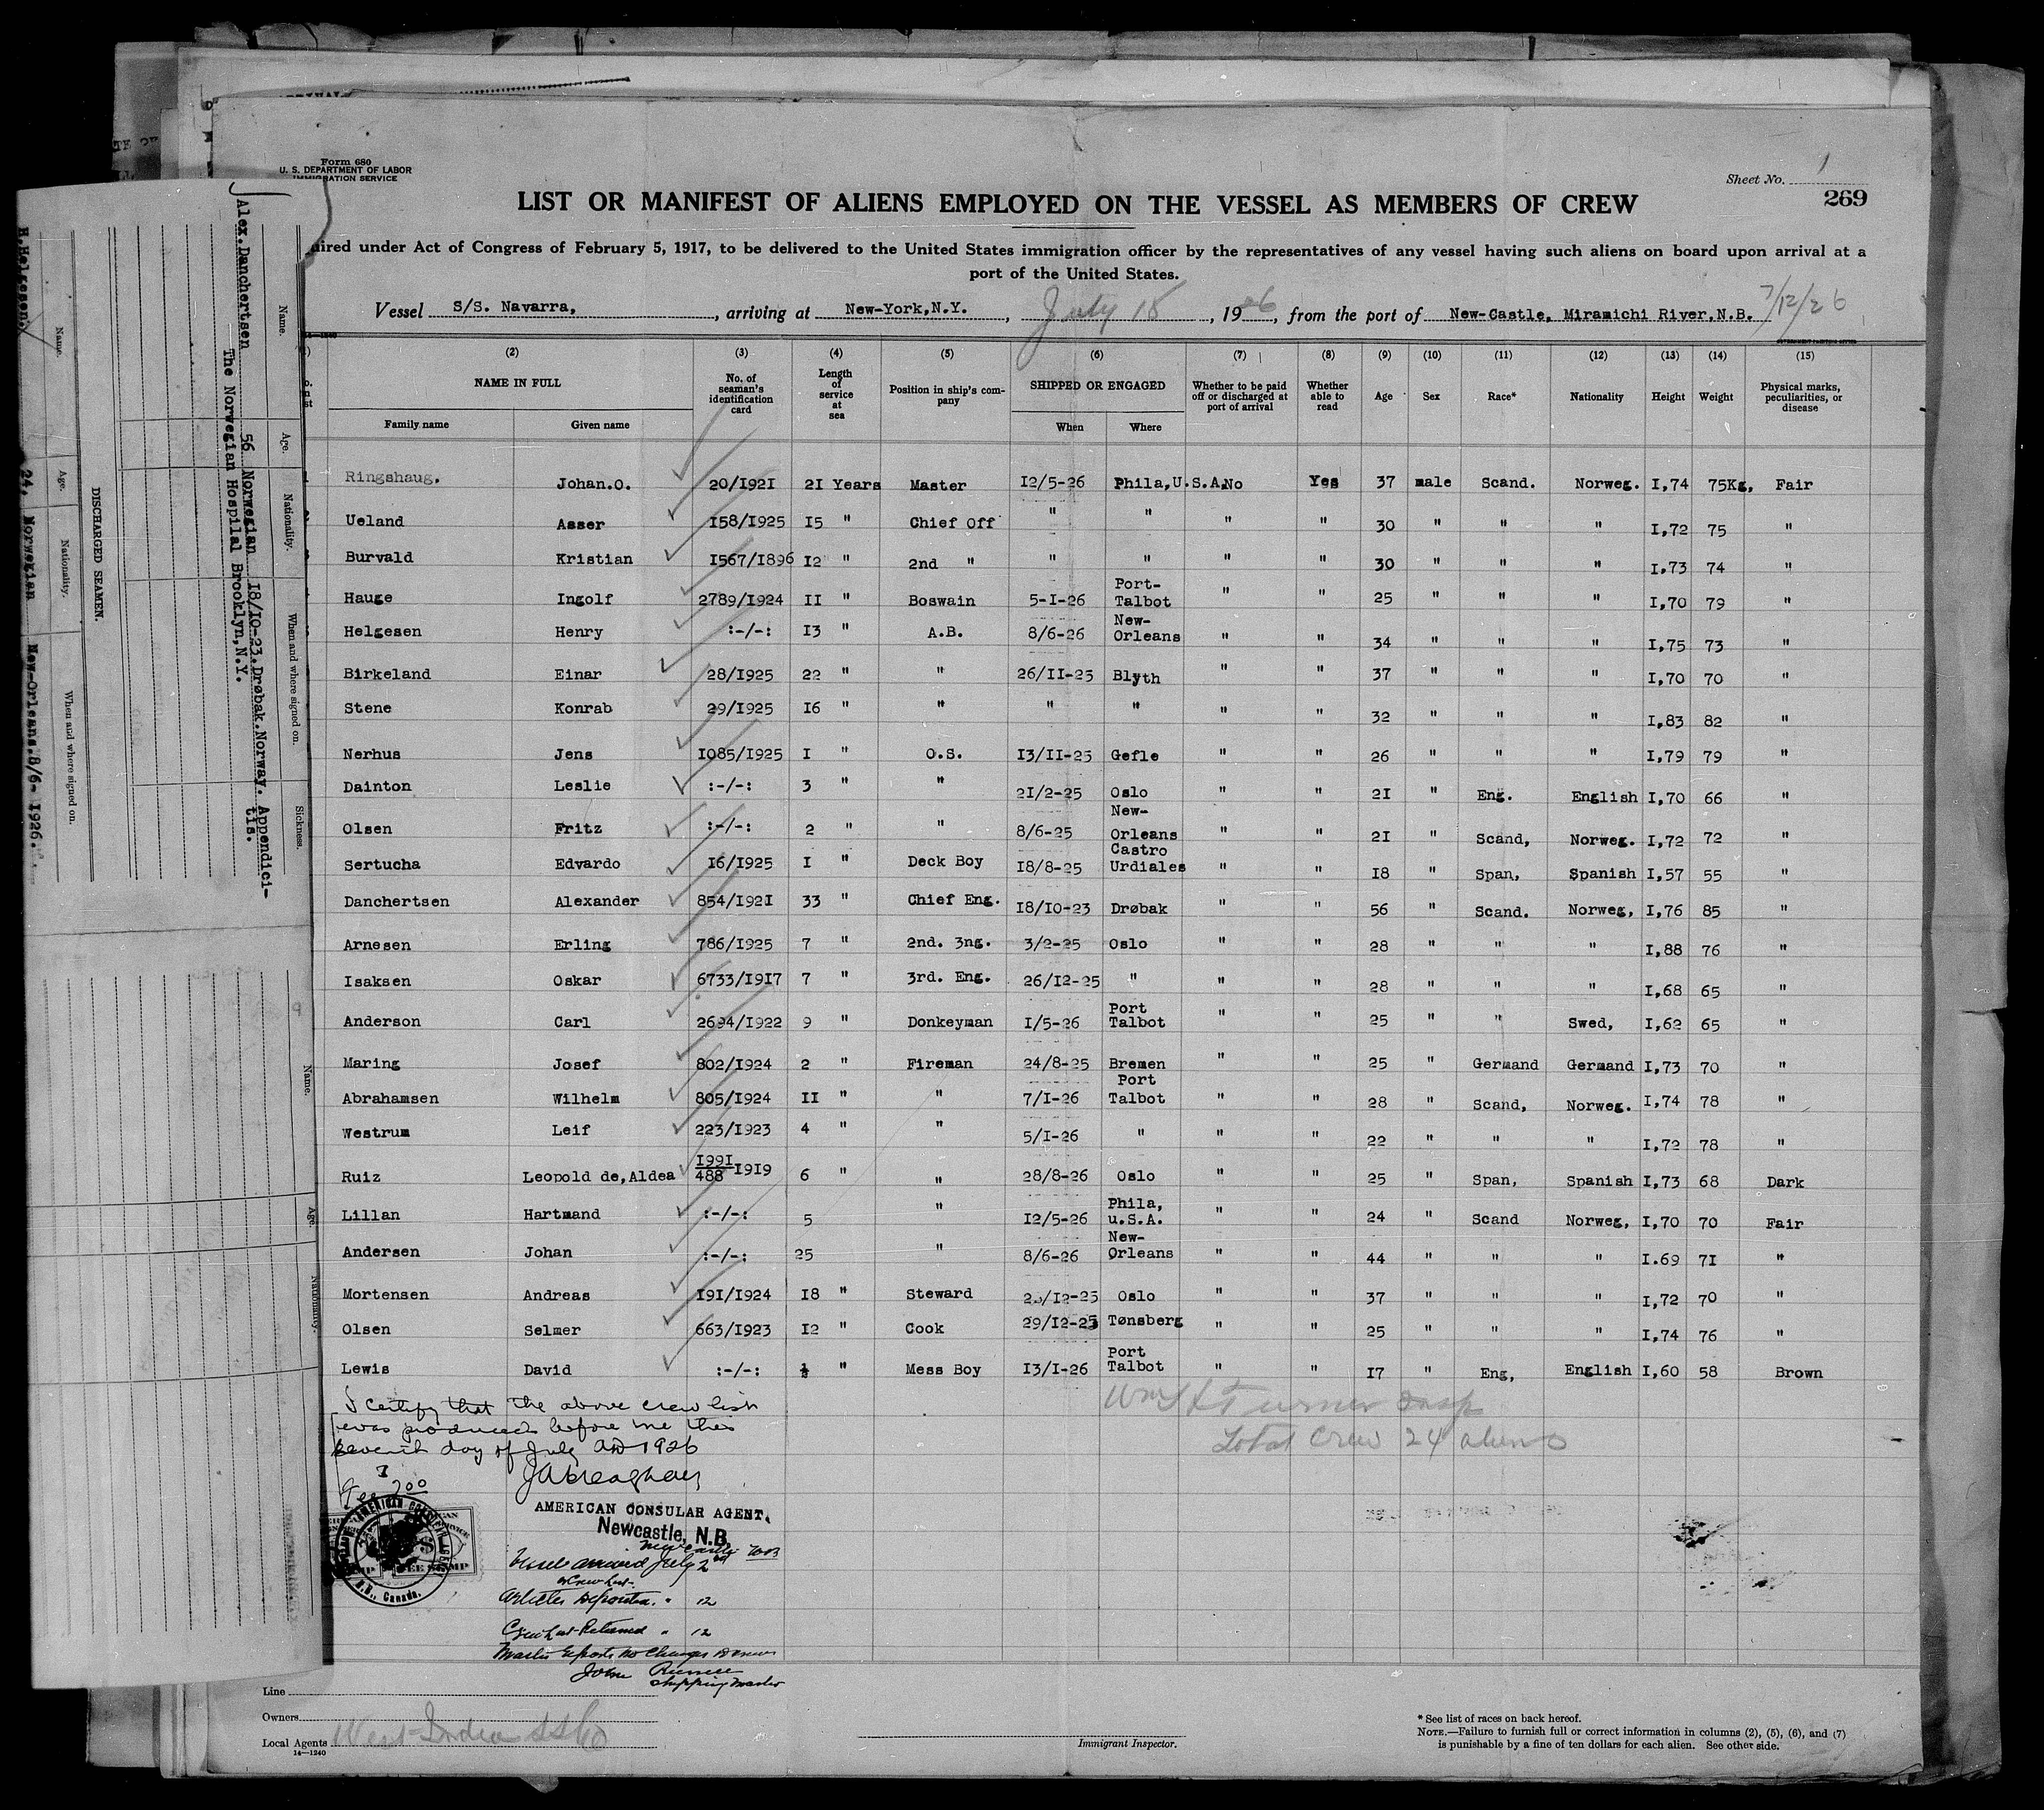 Form 680
U. S. DEPARTMENT OF LABOR
IMMIGRATION SERVICE
Sheet No. 1
269
LIST OR MANIFEST OF ALIENS EMPLOYED ON THE VESSEL AS MEMBERS OF CREW
uired under Act of Congress of February 5, 1917, to be delivered to the United States immigration officer by the representatives of any vessel having such aliens on board upon arrival at a
port of the United States.
Vessel S/S. Navarra, , arriving at New-York,N.Y. , July 15 , 1926, from the port of New-Castle, Miramichi River,N.B. 7/12/26
(2) (3) (4) (5) (6) (7) (8) (9) (10) (11) (12) (13) (14) (15)
NAME IN FULL No. of seaman's identification card Length of service at sea Position in ship's company SHIPPED OR ENGAGED Whether to be paid off or discharged at port of arrival Whether able to read Age Sex Race* Nationality Height Weight Physical marks, peculiarities, or disease
Family name Given name When Where
Ringshaug. Johan.O. 20/I92I 2I Years Master I2/5-26 Phila,U.S.A. No Yes 37 male Scand. Norweg. I,74 75Kg, Fair
Ueland Asser I58/I925 I5 " Chief Off " " " " 30 " " " I,72 75 "
Burvald Kristian I567/I896 I2 " 2nd " " " " " 30 " " " I,73 74 "
Hauge Ingolf 2789/I924 II " Boswain 5-I-26 Port-Talbot " " 25 " " " I,70 79 "
Helgesen Henry :-/-: I3 " A.B. 8/6-26 New-Orleans " " 34 " " " I,75 73 "
Birkeland Einar 28/I925 22 " " 26/II-25 Blyth " " 37 " " " I,70 70 "
Stene Konrab 29/I925 I6 " " " " " " 32 " " " I,83 82 "
Nerhus Jens I085/I925 I " O.S. I3/II-25 Gefle " " 26 " " " I,79 79 "
Dainton Leslie :-/-: 3 " " 2I/2-25 Oslo " " 2I " Eng. English I,70 66 "
Olsen Fritz :-/-: 2 " " 8/6-25 New-Orleans " " 2I " Scand, Norweg. I,72 72 "
Sertucha Edvardo I6/I925 I " Deck Boy I8/8-25 Castro Urdiales " " I8 " Span, Spanish I,57 55 "
Danchertsen Alexander 854/I92I 33 " Chief Eng. I8/I0-23 Drøbak " " 56 " Scand. Norweg, I,76 85 "
Arnesen Erling 786/I925 7 " 2nd. 3ng. 3/2-25 Oslo " " 28 " " " I,88 76 "
Isaksen Oskar 6733/I9I7 7 " 3rd. Eng. 26/I2-25 " " " 28 " " " I,68 65 "
Anderson Carl 2694/I922 9 " Donkeyman I/5-26 Port Talbot " " 25 " " Swed, I,62 65 "
Maring Josef 802/I924 2 " Fireman 24/8-25 Bremen " " 25 " Germand Germand I,73 70 "
Abrahamsen Wilhelm 805/I924 II " " 7/I-26 Port Talbot " " 28 " Scand, Norweg. I,74 78 "
Westrum Leif 223/I923 4 " " 5/I-26 " " " 22 " " " I,72 78 "
Ruiz Leopold de,Aldea I99I/488 I9I9 6 " " 28/8-26 Oslo " " 25 " Span, Spanish I,73 68 Dark
Lillan Hartmand :-/-: 5 " I2/5-26 Phila, u.S.A. " " 24 " Scand Norweg, I,70 70 Fair
Andersen Johan :-/-: 25 " 8/6-26 New-Orleans " " 44 " " " I.69 7I "
Mortensen Andreas I9I/I924 I8 " Steward /I2-25 Oslo " " 37 " " " I,72 70 "
Olsen Selmer 663/I923 I2 " Cook 29/I2-25 Tønsberg " " 25 " " " I,74 76 "
Lewis David :-/-: ½ " Mess Boy I3/I-26 Port Talbot " " I7 " Eng, English I,60 58 Brown
I certify that the above crew list
was produced before me this
seventh day of July AD 1926
Fee 2 00
AMERICAN CONSULAR AGENT.
Newcastle, N.B.
Newcastle N.B
Vessel arrived July 2nd
& Crew List
Articles Deposited. " 12
Crew List Returned " 12
Master Reports no Changes in crew
John Russell
Shipping Master
Wm H Turner Insp
Total Crew 24 aliens
Line
Owners
Local Agents West India SS Co
14—1240
Immigrant Inspector.
* See list of races on back hereof.
NOTE.—Failure to furnish full or correct information in columns (2), (5), (6), and (7)
is punishable by a fine of ten dollars for each alien. See other side.
DISCHARGED SEAMEN.
Name. Age. Nationality. When and where signed on. Sickness.
Alex.Danchertsen 56 Norwegian I8/I0-23.Drøbak.Norway. Appendici-
tis.
The Norwegian Hospilal Brooklyn,N.Y.
Name. Age. Nationality. When and where signed on.
H.Helgesen. 24. Norwegian New-Orleans.8/6- I926.
Name. Age. Nationality.